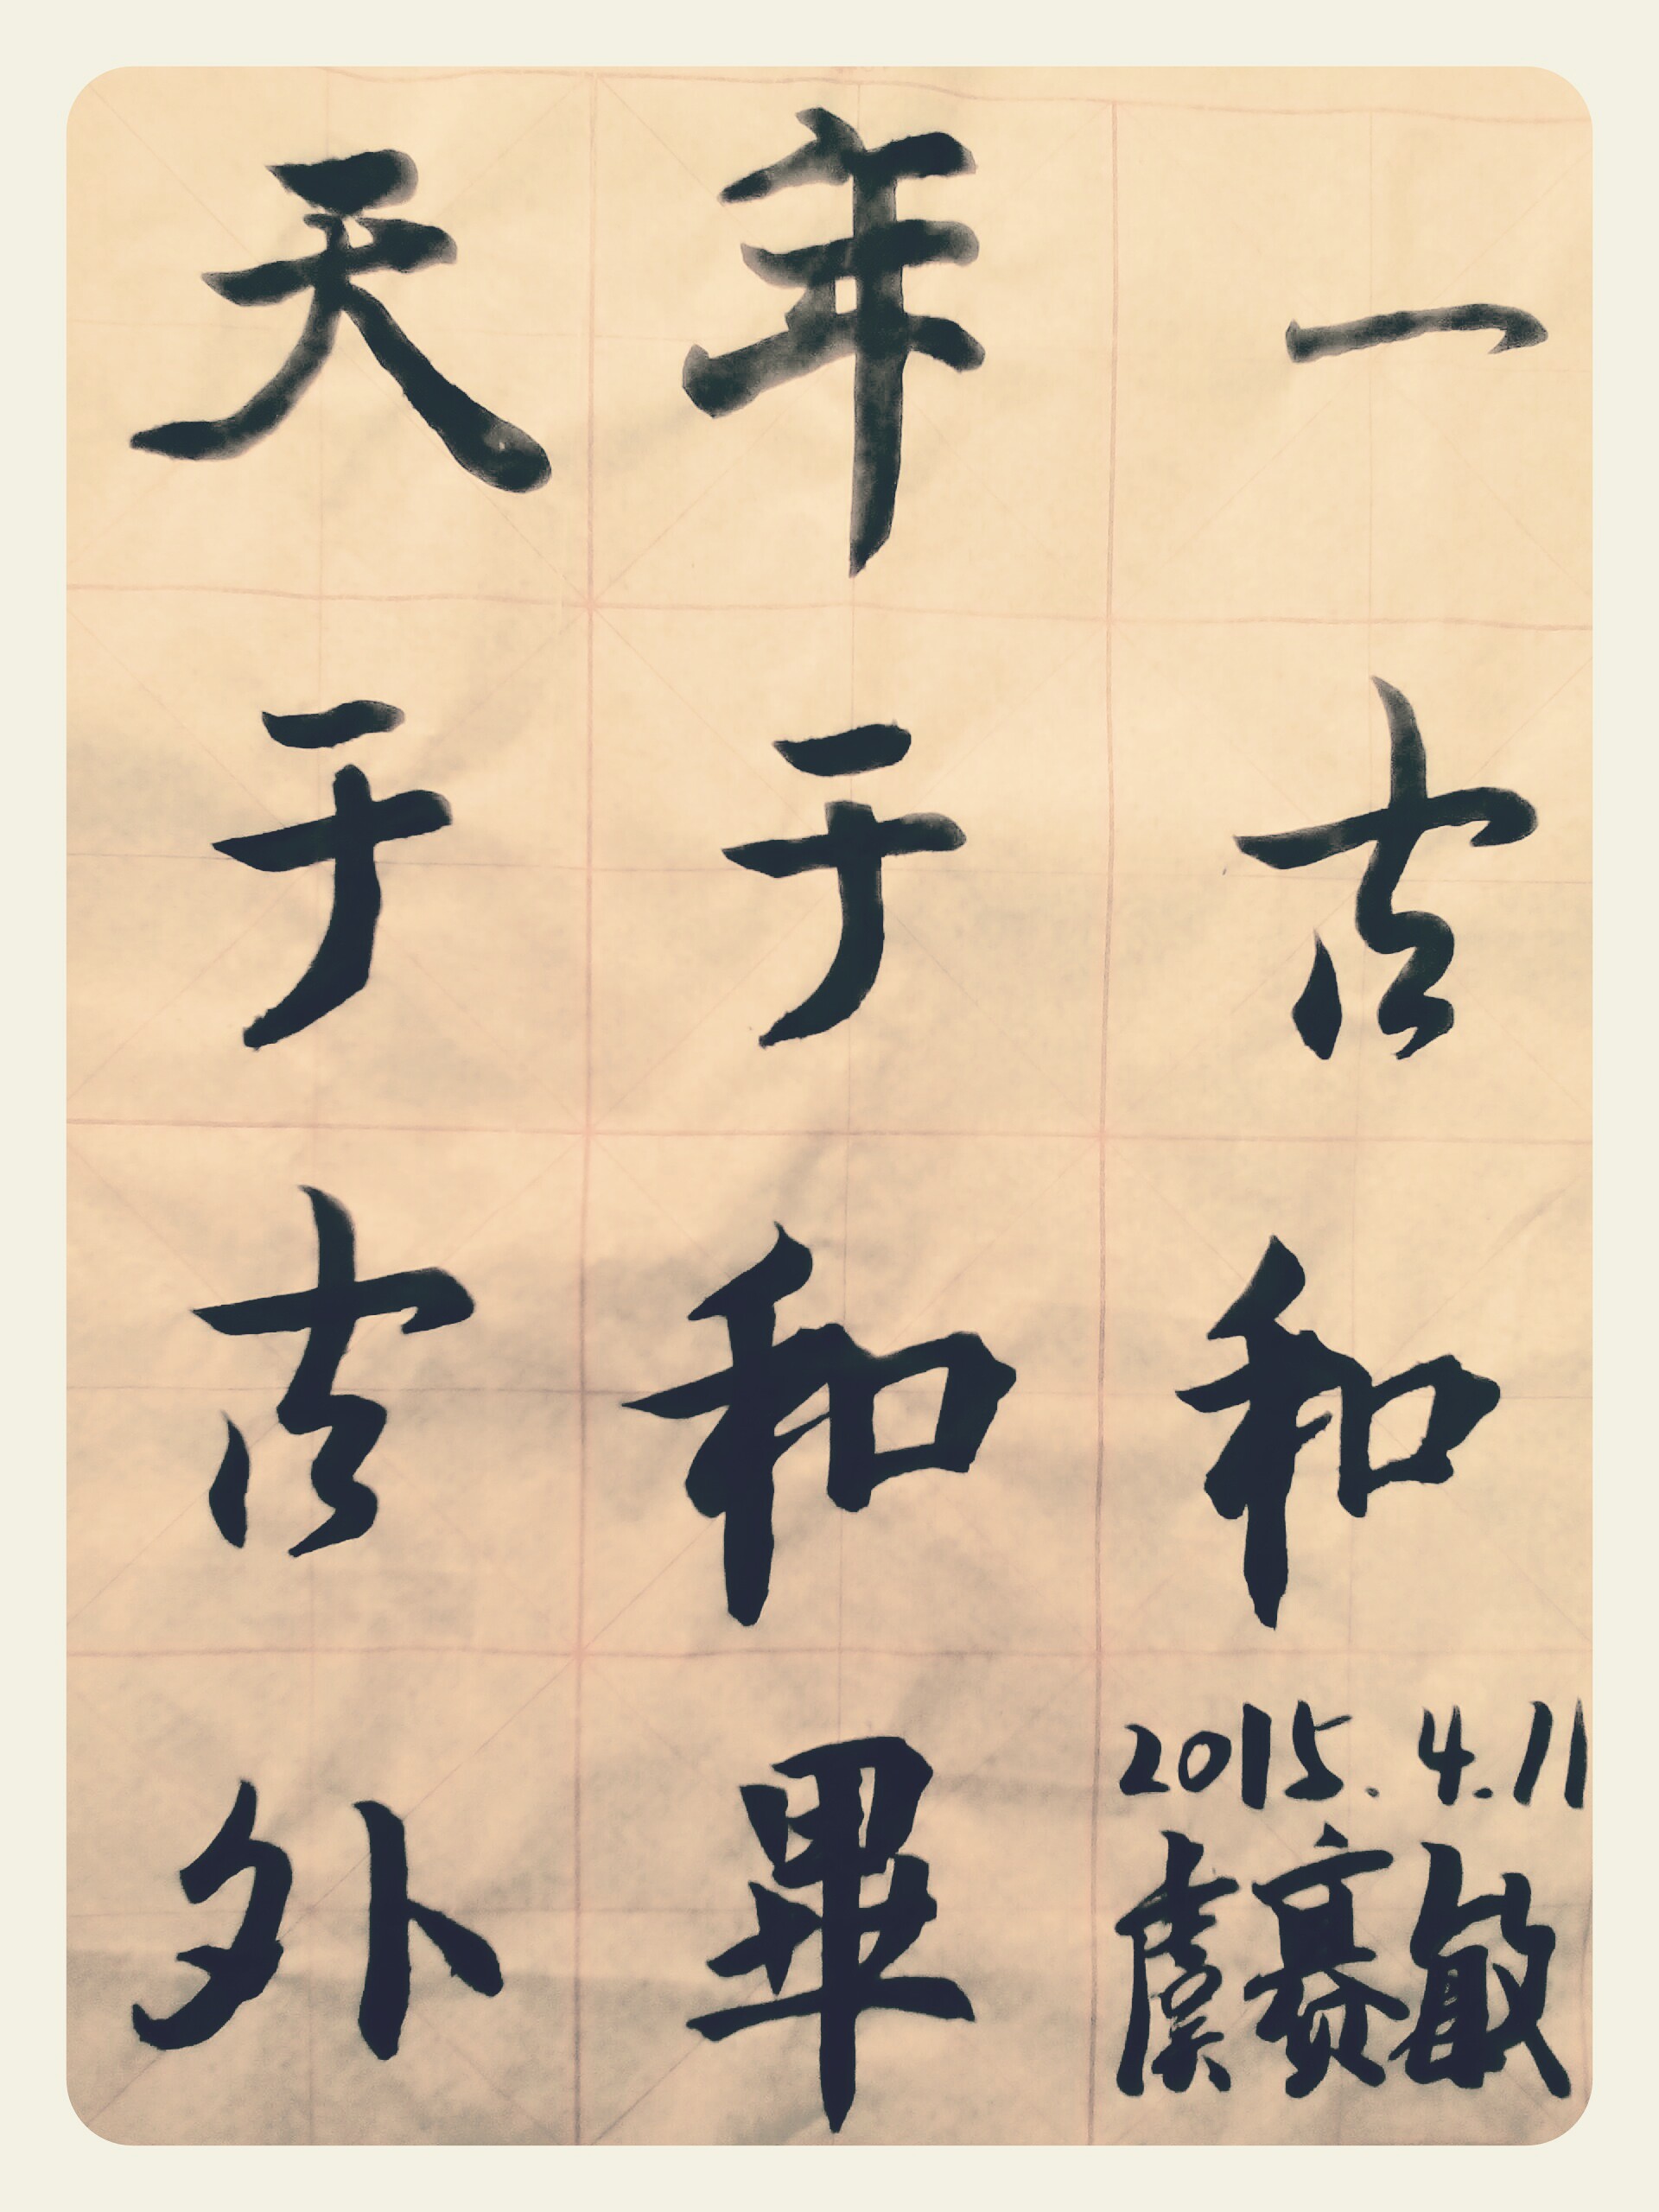 天于古外
年于和畢
一古和
2015.4.11
虞赛敏